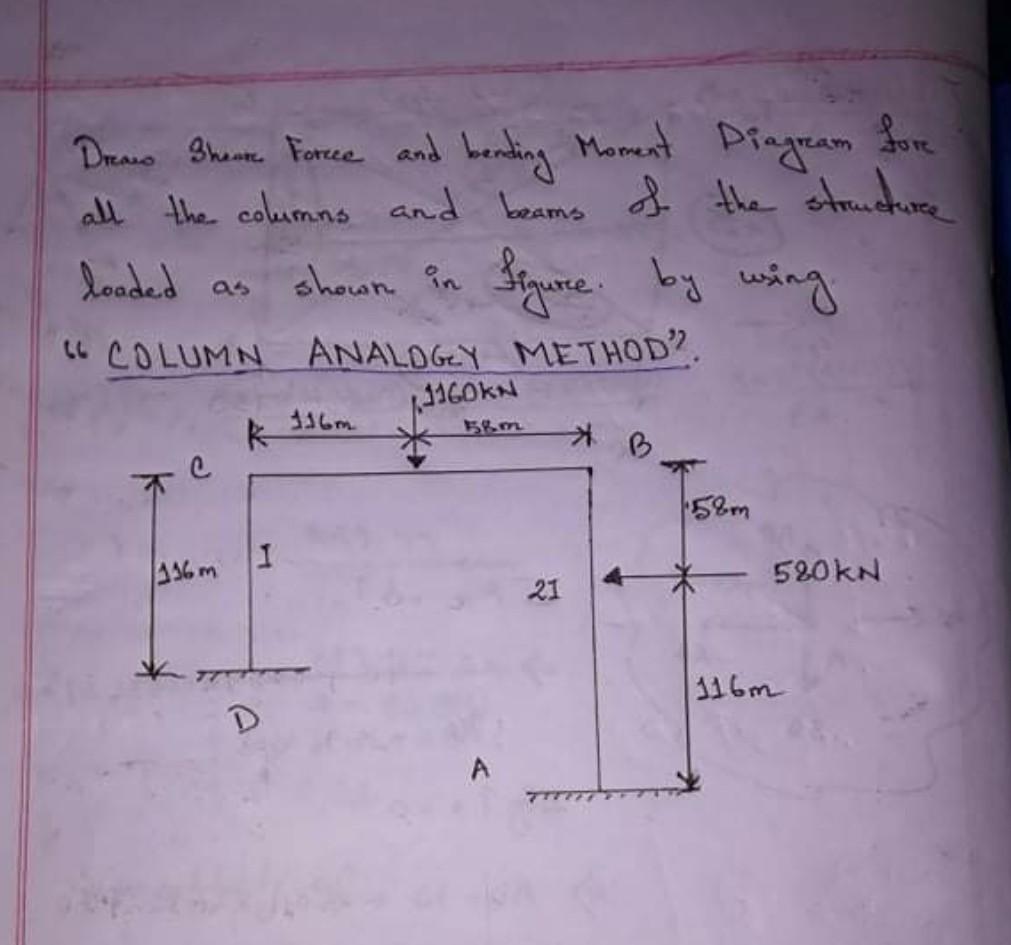 Draw Shear Force and bending Moment Diagram for
all the columns and beams of the structure
loaded as shown in figure. by using
"COLUMN ANALOGY METHOD".
1160KN
116m
58m
B
C
58m
116m
I
580KN
2I
116m
D
A